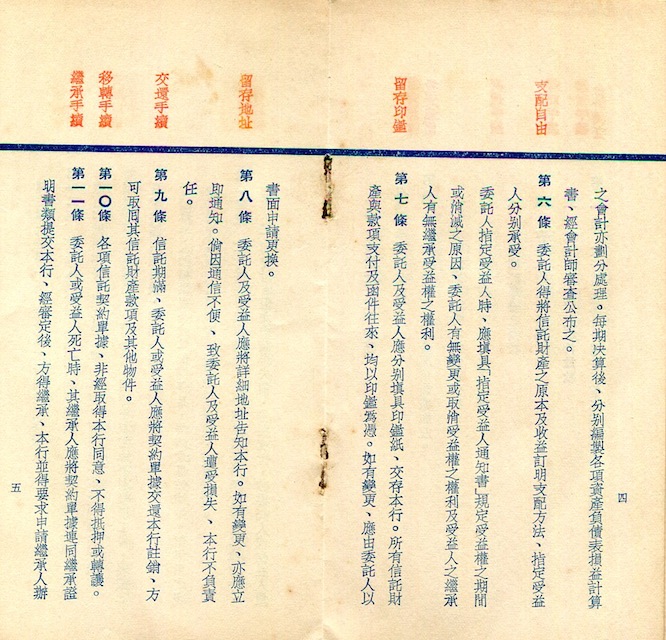 支配自由
留存印鑑
之會計亦劃分處理。每期決算後、分別編製各項資產負債表損益計算
書、經會計師審查公布之。
第六條 委託人得將信託財產之原本及收益訂明支配方法、指定受益
人分別承受。
委託人指定受益人時、應填具「指定受益人通知書」規定受益權之期間
或消滅之原因、委託人有無變更或取消受益權之權利及受益人之繼承
人有無繼承受益權之權利。
第七條 委託人及受益人應分別填具印鑑紙、交存本行。所有信託財
產與款項支付及函件往來、均以印鑑為憑。如有變更、應由委託人以
四
留存地址
交還手續
移轉手續
繼承手續
書面申請更換。
第八條 委託人及受益人應將詳細地址告知本行。如有變更、亦應立
即通知。倘因通信不便、致委託人及受益人遭受損失、本行不負責
任。
第九條 信託期滿、委託人或受益人應將契約單據交還本行註銷、方
可取回其信託財產款項及其他物件。
第一〇條 各項信託契約單據、非經取得本行同意、不得抵押或轉讓。
第一一條 委託人或受益人死亡時、其繼承人應將契約單據連同繼承證
明書類提交本行、經審定後、方得繼承、本行並得要求申請繼承人辦
五